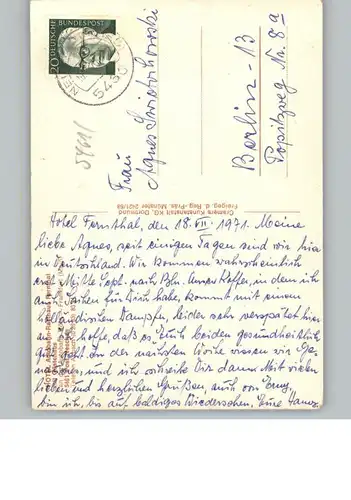 DEUTSCHE BUNDESPOST
20
545
Frau
Agnes Swietochowski
Berlin - 13
Popitzweg Nr. 8a
Cramers Kunstanstalt KG, Dortmund
Freigeg. d. Reg.-Präs. Münster
Hotel Fernthal, den 18. VII. 1971. Meine
liebe Agnes, seit einigen Tagen sind wir hier
in Deutschland. Wir kommen wahrscheinlich
erst Mitte Sept. nach Bln. Unser Koffer, in dem ich
auch Sachen für Dich habe, kommt mit einem
holländischen Dampfer, leider sehr verspätet hier
an. Ich hoffe, daß es Euch beiden gesundheitlich
gut geht. In der nächsten Woche wissen wir
und ich schreibe Dir dann. Mit vielen
lieben und herzlichen Grüßen, auch von
bin ich, bis auf baldiges Wiedersehen, Eure